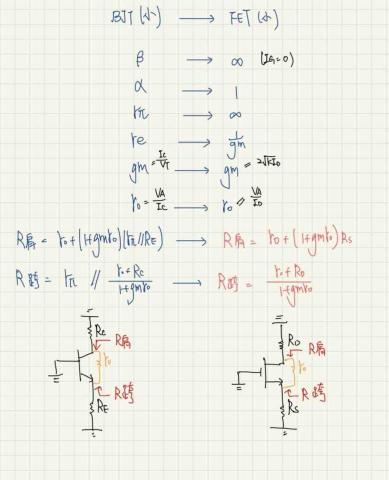 BJT (小) → FET (小)
β → ∞ (IG=0)
α → 1
rπ → ∞
re → 1/gm
gm = Ic/VT → gm = 2√KID
ro = VA/Ic → ro = VA/ID
R肩 = ro + (1+gmro)(rπ//RE) → R肩 = ro + (1+gmro)Rs
R跨 = rπ // (ro+Rc)/(1+gmro) → R跨 = (ro+RD)/(1+gmro)
Rc RD
R肩 R肩
ro ro
R跨 R跨
RE Rs